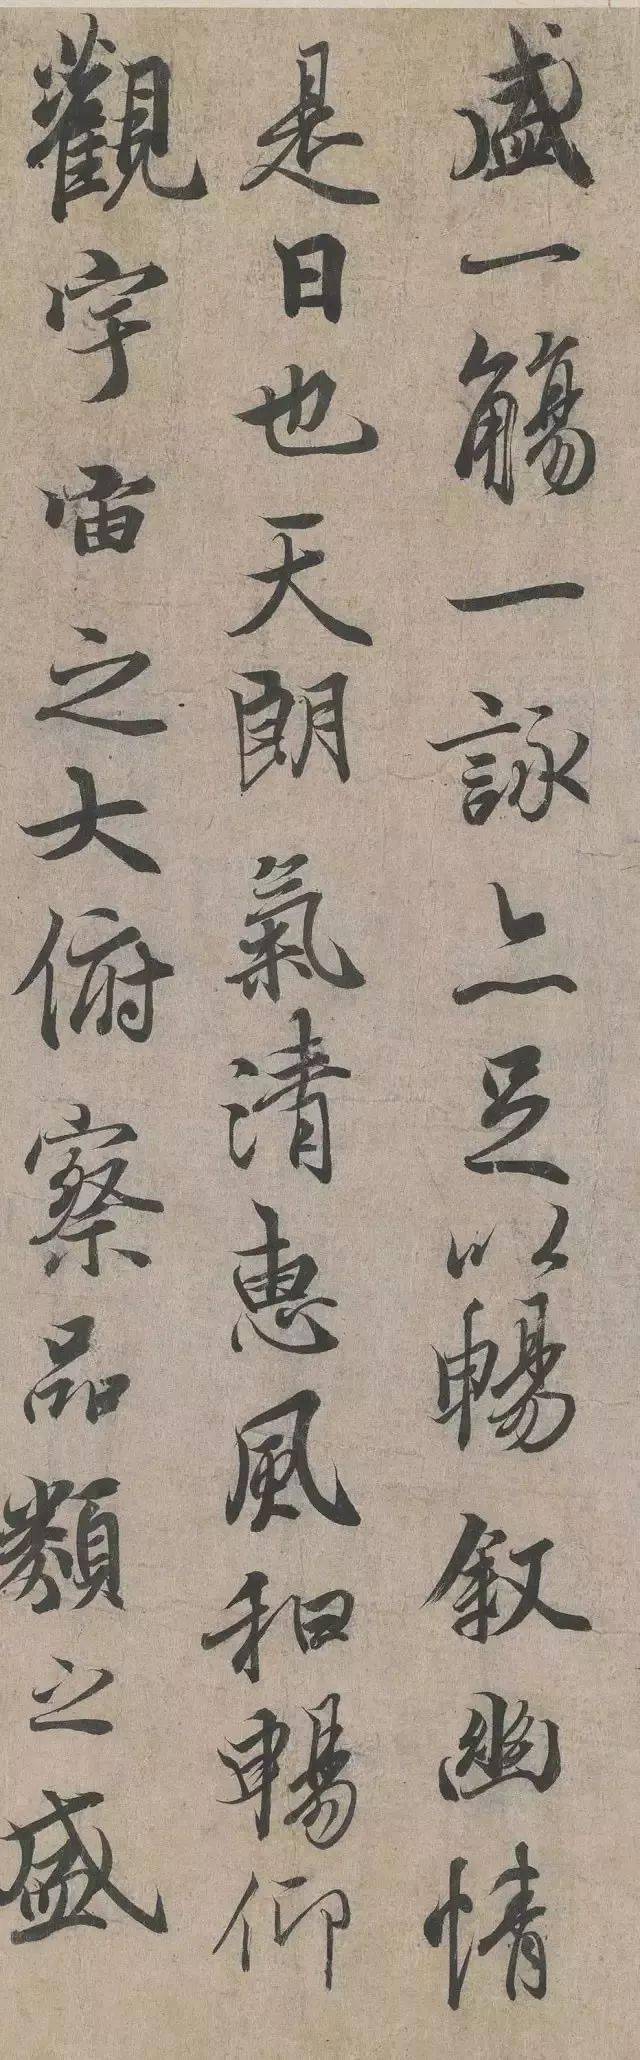 盛一觴一詠亦足以暢敘幽情
是日也天朗氣清惠風和暢仰
觀宇宙之大俯察品類之盛